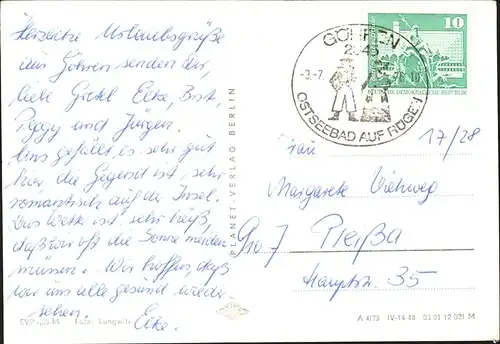 Herzliche Urlaubsgrüße
aus Göhren senden Dir,
liebe Gretel Elke, Brit,
Peggy und Jürgen.
Uns gefällt es sehr gut
hier, die Gegend ist sehr
romantisch auf der Insel.
Das Wetter ist sehr heiß,
daß wir oft die Sonne meiden
müssen. Wir hoffen, daß
wir uns alle gesund wieder
sehen. Elke.
EVP -,25 M Foto: Langwitz
PLANET-VERLAG BERLIN
GÖHREN
2345
-3.-7.
OSTSEEBAD AUF RÜGEN
10
DEUTSCHE DEMOKRATISCHE REPUBLIK
17/28
Frau
Margarete Viehweg
9107 Pleißa
Hauptstr. 35
A 4/75 IV-14-48 03 01 12 021 M